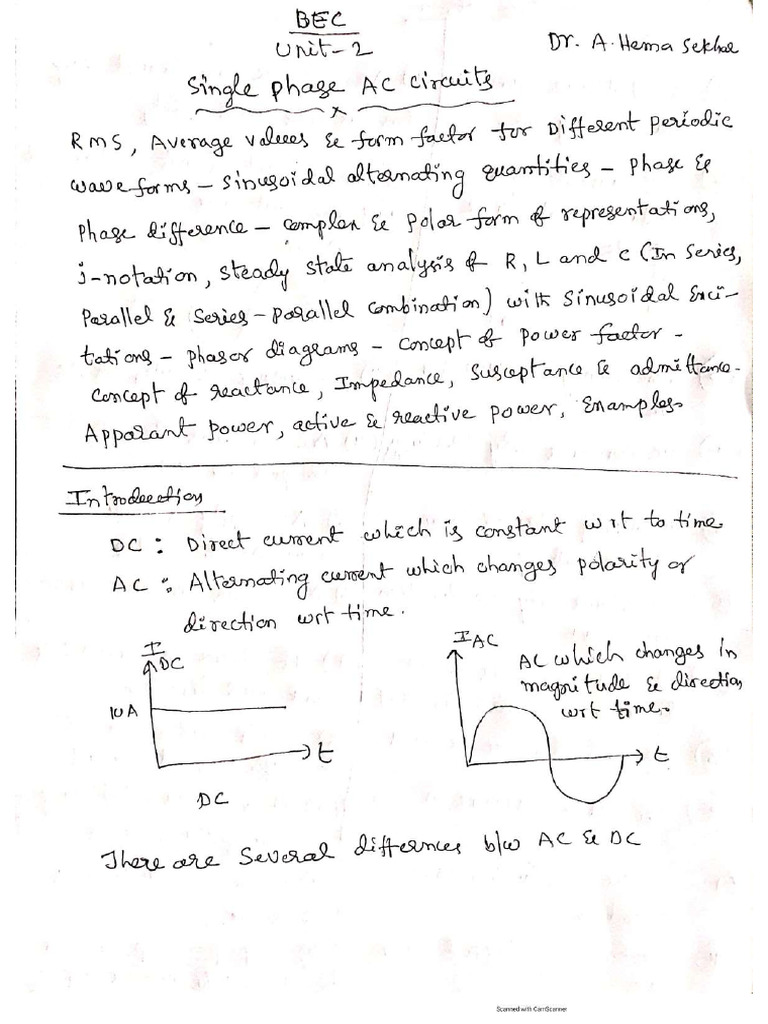 BEC
Unit-2
Dr. A. Hema Sekhar
Single phase AC circuits
x
RMS, Average values & form factor for Different periodic
wave forms - sinusoidal alternating quantities - phase &
phase difference - complex & polar form of representations,
j-notation, steady state analysis of R, L and C (In Series,
Parallel & Series-parallel combination) with sinusoidal Exci-
tations - phasor diagrams - concept of power factor -
concept of reactance, Impedance, Susceptance & admittance-
Apparant power, active & reactive power, Examples.
Introduction
DC : Direct current which is constant wrt to time
AC : Alternating current which changes polarity or
direction wrt time.
I
DC
10A
t
DC
I AC
AC which changes in
magnitude & direction
wrt time.
t
There are Several differnces b/w AC & DC
Scanned with CamScanner